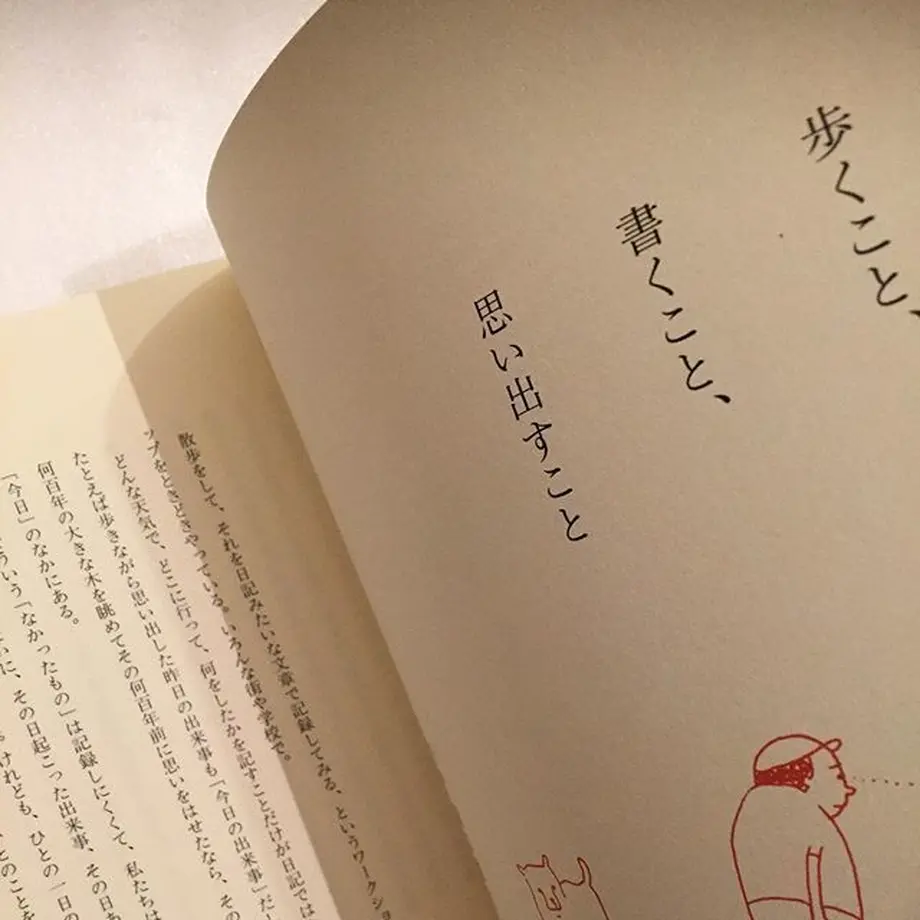 歩くこと、
書くこと、
思い出すこと
散歩をして、それを日記みたいな文章で記録してみる、というワークショ
ップをときどきやっている。いろんな街や学校で。
どんな天気で、どこに行って、何をしたかを記すことだけが日記では
たとえば歩きながら思い出した昨日の出来事も「今日の出来事」だ
何百年の大きな木を眺めてその何百年前に思いをはせたなら、そ
「今日」のなかにある。
ういう「なかったもの」は記録しにくくて、私たちは
に、その日起こった出来事、その日
けれども、ひとの一日の
とのことを